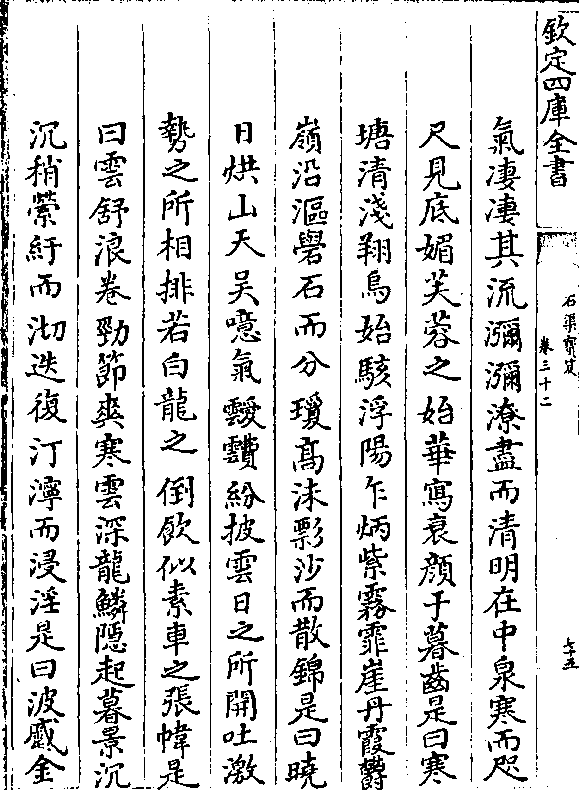 欽定四庫全書
石渠寳笈
卷三十二
七十五
氣淒淒其流瀰瀰潦盡而清明在中泉寒而咫
尺見底媚芙蓉之始華寫衰顔于暮齒是曰寒
塘清淺翔鳥始駭浮陽乍炳紫霧霏崖丹霞欝
嶺沿漚礐石而分瓊髙沫彯沙而散錦是曰曉
日烘山天吴噫氣靉靆紛披雲日之所開吐激
勢之所相排若白龍之倒飲似素車之張幃是
曰雲舒浪卷勁節爽寒雲深龍鱗隠起暮景沉
沉稍縈紆而沏迭復汀濘而浸淫是曰波蹙金